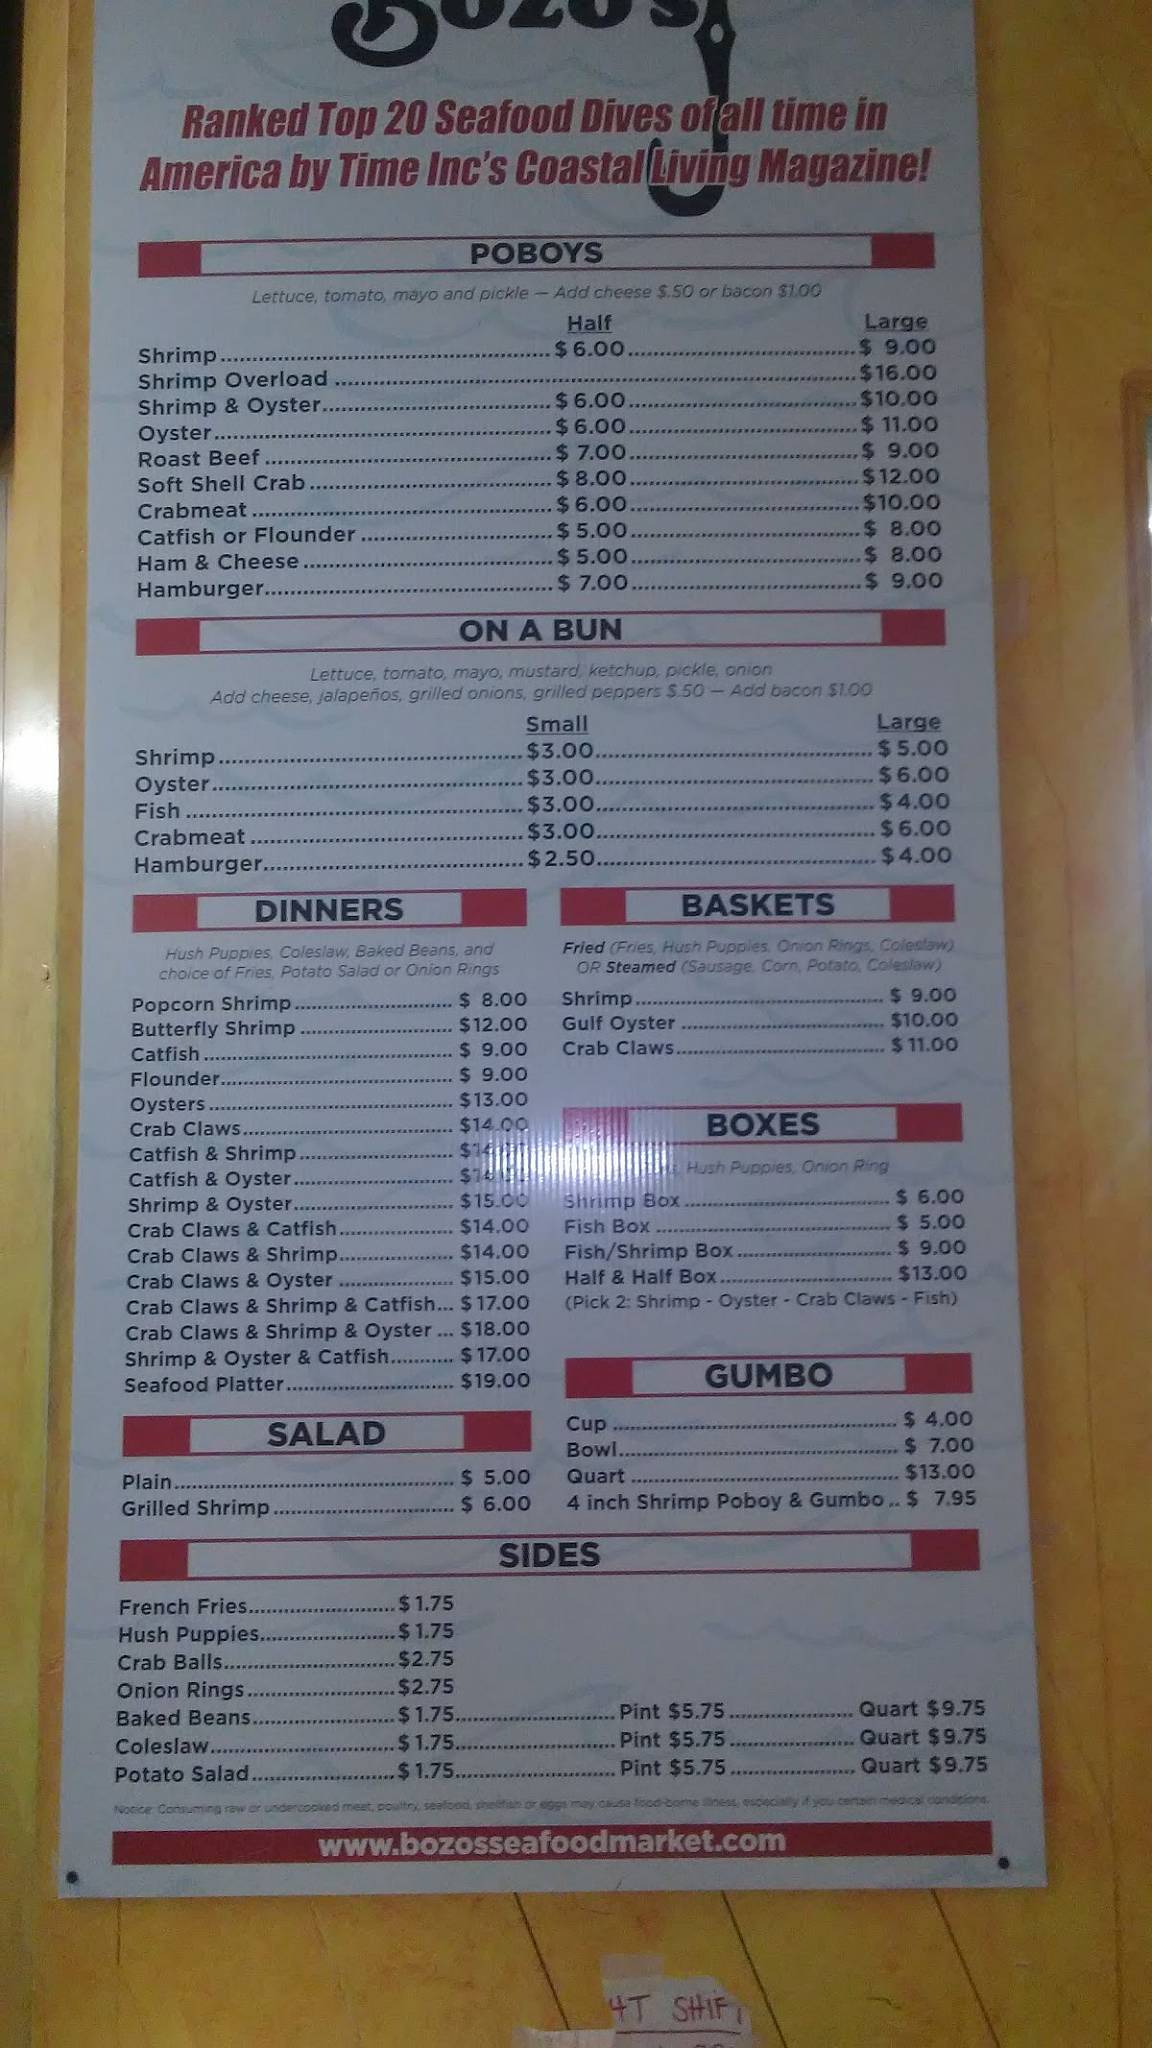 Bozo's
Ranked Top 20 Seafood Dives of all time in
America by Time Inc's Coastal Living Magazine!
POBOYS
Lettuce, tomato, mayo and pickle — Add cheese $.50 or bacon $1.00
Half Large
Shrimp $6.00 $ 9.00
Shrimp Overload $16.00
Shrimp & Oyster $6.00 $10.00
Oyster $6.00 $ 11.00
Roast Beef $ 7.00 $ 9.00
Soft Shell Crab $8.00 $12.00
Crabmeat $6.00 $10.00
Catfish or Flounder $5.00 $ 8.00
Ham & Cheese $5.00 $ 8.00
Hamburger $ 7.00 $ 9.00
ON A BUN
Lettuce, tomato, mayo, mustard, ketchup, pickle, onion
Add cheese, jalapeños, grilled onions, grilled peppers $.50 — Add bacon $1.00
Small Large
Shrimp $3.00 $5.00
Oyster $3.00 $6.00
Fish $3.00 $4.00
Crabmeat $3.00 $6.00
Hamburger $2.50 $4.00
DINNERS
Hush Puppies, Coleslaw, Baked Beans, and
choice of Fries, Potato Salad or Onion Rings
Popcorn Shrimp $ 8.00
Butterfly Shrimp $12.00
Catfish $ 9.00
Flounder $ 9.00
Oysters $13.00
Crab Claws $14.00
Catfish & Shrimp
Catfish & Oyster
Shrimp & Oyster $15.00
Crab Claws & Catfish $14.00
Crab Claws & Shrimp $14.00
Crab Claws & Oyster $15.00
Crab Claws & Shrimp & Catfish... $17.00
Crab Claws & Shrimp & Oyster ... $18.00
Shrimp & Oyster & Catfish $17.00
Seafood Platter $19.00
BASKETS
Fried (Fries, Hush Puppies, Onion Rings, Coleslaw)
OR Steamed (Sausage, Corn, Potato, Coleslaw)
Shrimp $ 9.00
Gulf Oyster $10.00
Crab Claws $11.00
BOXES
Hush Puppies, Onion Ring
Shrimp Box $ 6.00
Fish Box $ 5.00
Fish/Shrimp Box $ 9.00
Half & Half Box $13.00
(Pick 2: Shrimp - Oyster - Crab Claws - Fish)
GUMBO
Cup $ 4.00
Bowl $ 7.00
Quart $13.00
4 inch Shrimp Poboy & Gumbo .. $ 7.95
SALAD
Plain $ 5.00
Grilled Shrimp $ 6.00
SIDES
French Fries $1.75
Hush Puppies $1.75
Crab Balls $2.75
Onion Rings $2.75
Baked Beans $1.75 Pint $5.75 Quart $9.75
Coleslaw $1.75 Pint $5.75 Quart $9.75
Potato Salad $1.75 Pint $5.75 Quart $9.75
Notice: Consuming raw or undercooked meat, poultry, seafood, shellfish or eggs may cause food-borne illness, especially if you certain medical conditions.
www.bozosseafoodmarket.com